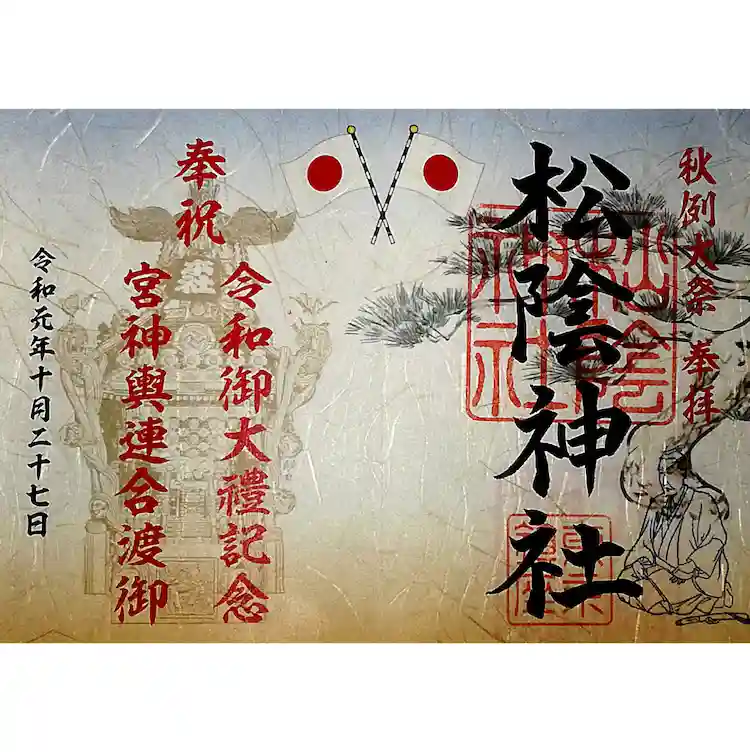 秋例大祭 奉拝
松陰神社
松陰神社
奉祝
令和御大禮記念
宮神輿連合渡御
令和元年十月二十七日